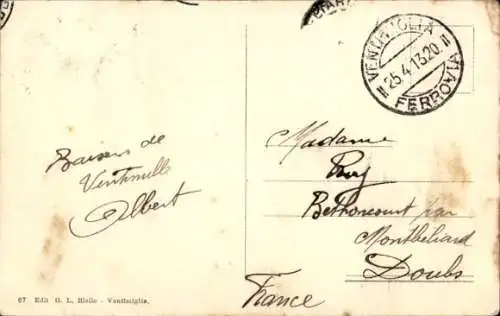 VENTIMIGLIA
25.4.13.20
FERROVIA
Baisers de
Ventimille
Albert
Madame
Bethoncourt par
Montbeliard
Doubs
France
67 Edit. G. L. Riello - Ventimiglia.